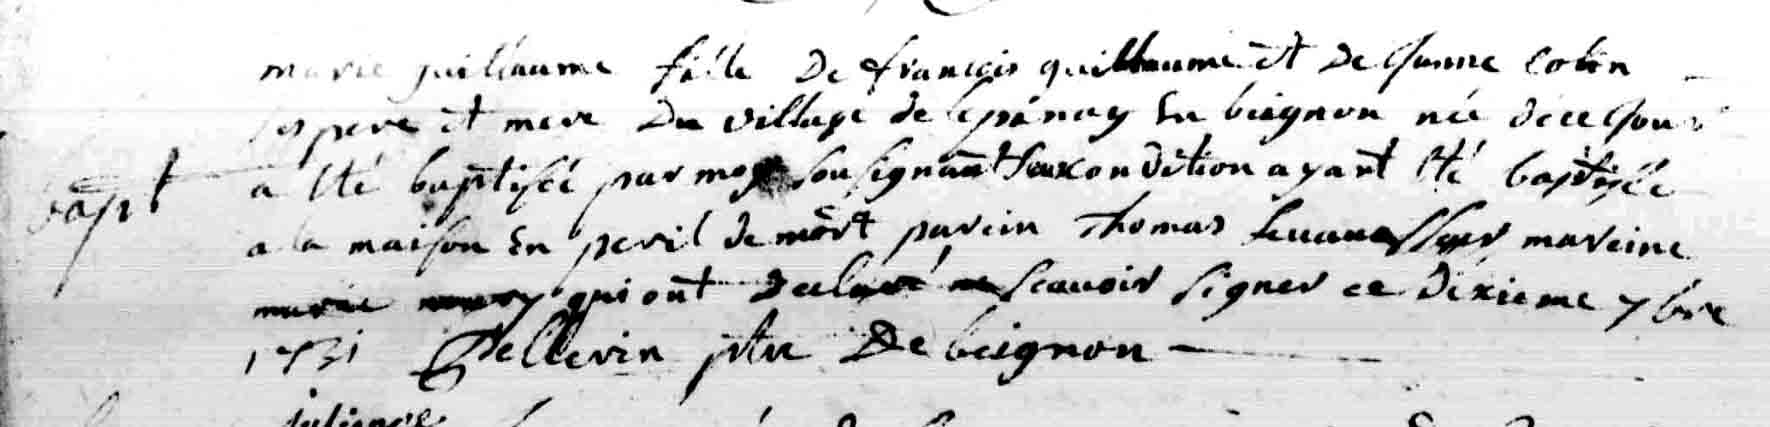 marie guillaume fille De francois guillaume Et De Janne Colin
ses pere Et mere Du village de lepinay En beignon née de ce Jour
bapt
a Eté baptiséé par moy sousignant sous condition ayant Eté baptiséé
a la maison En peril de mort parein Thomas Levavasseur mareine
marie qui ont declaré ne scavoir signer ce dixieme 7bre
1731 Pellerin ptre De beignon